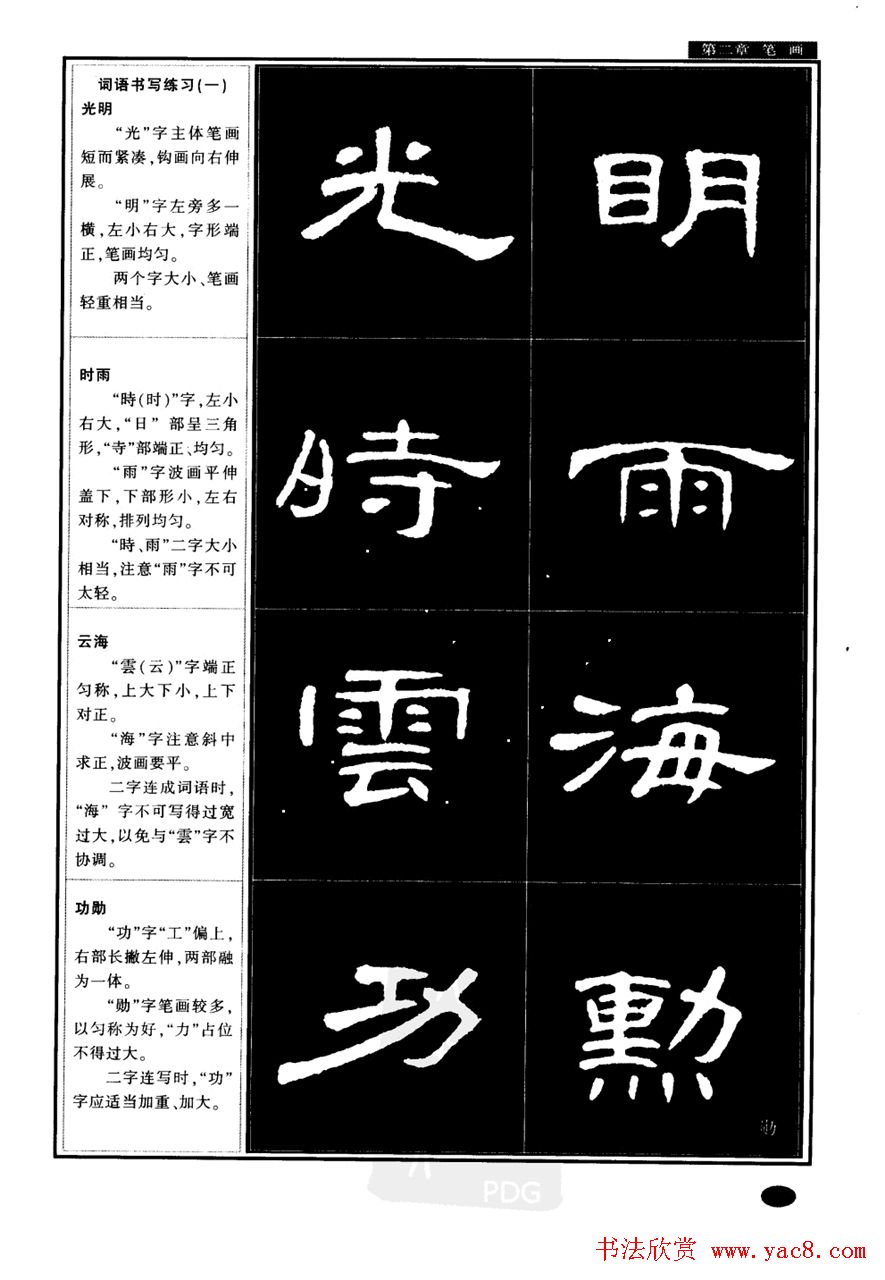 第二章 笔 画
词语书写练习(一)
光明
“光”字主体笔画
短而紧凑,钩画向右伸
展。
“明”字左旁多一
横,左小右大,字形端
正,笔画均匀。
两个字大小、笔画
轻重相当。
光 明
时雨
“時(时)”字,左小
右大,“日”部呈三角
形,“寺”部端正、均匀。
“雨”字波画平伸
盖下,下部形小,左右
对称,排列均匀。
“時、雨”二字大小
相当,注意“雨”字不可
太轻。
時 雨
云海
“雲(云)”字端正
匀称,上大下小,上下
对正。
“海”字注意斜中
求正,波画要平。
二字连成词语时,
“海”字不可写得过宽
过大,以免与“雲”字不
协调。
雲 海
功勋
“功”字“工”偏上,
右部长撇左伸,两部融
为一体。
“勋”字笔画较多,
以匀称为好,“力”占位
不得过大。
二字连写时,“功”
字应适当加重、加大。
功 勳
勋
PDG
书法欣赏 www.yac8.com